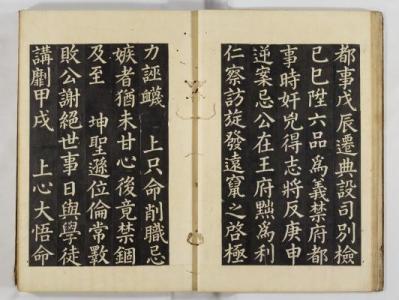 都事戊辰遷典設司別檢
己巳陞六品爲義禁府都
事時奸兇得志將反庚申
逆案忌公在王府黜爲利
仁察訪旋發遠竄之啓極
力誣衊 上只命削職忌
嫉者猶未甘心後竟禁錮
及至 坤聖遜位倫常斁
敗公謝絕世事日與學徒
講劘甲戌 上心大悟命